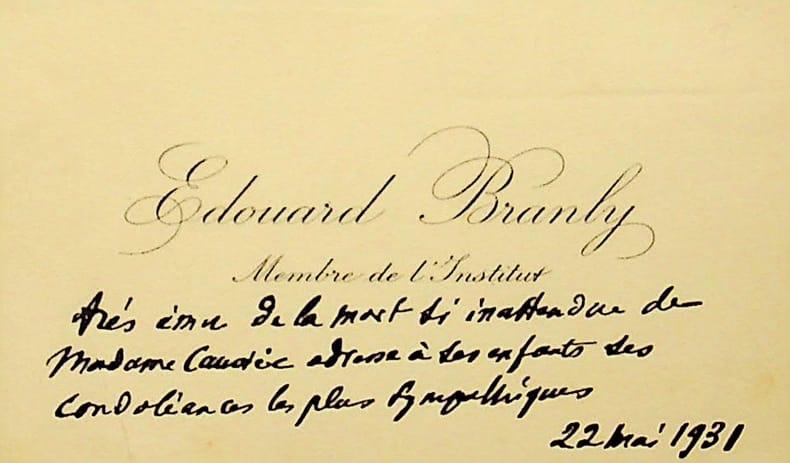 Edouard Branly
Membre de l'Institut
très ému de la mort si inattendue de
Madame adresse à ses enfants ses
condoléances les plus sympathiques
22 mai 1931